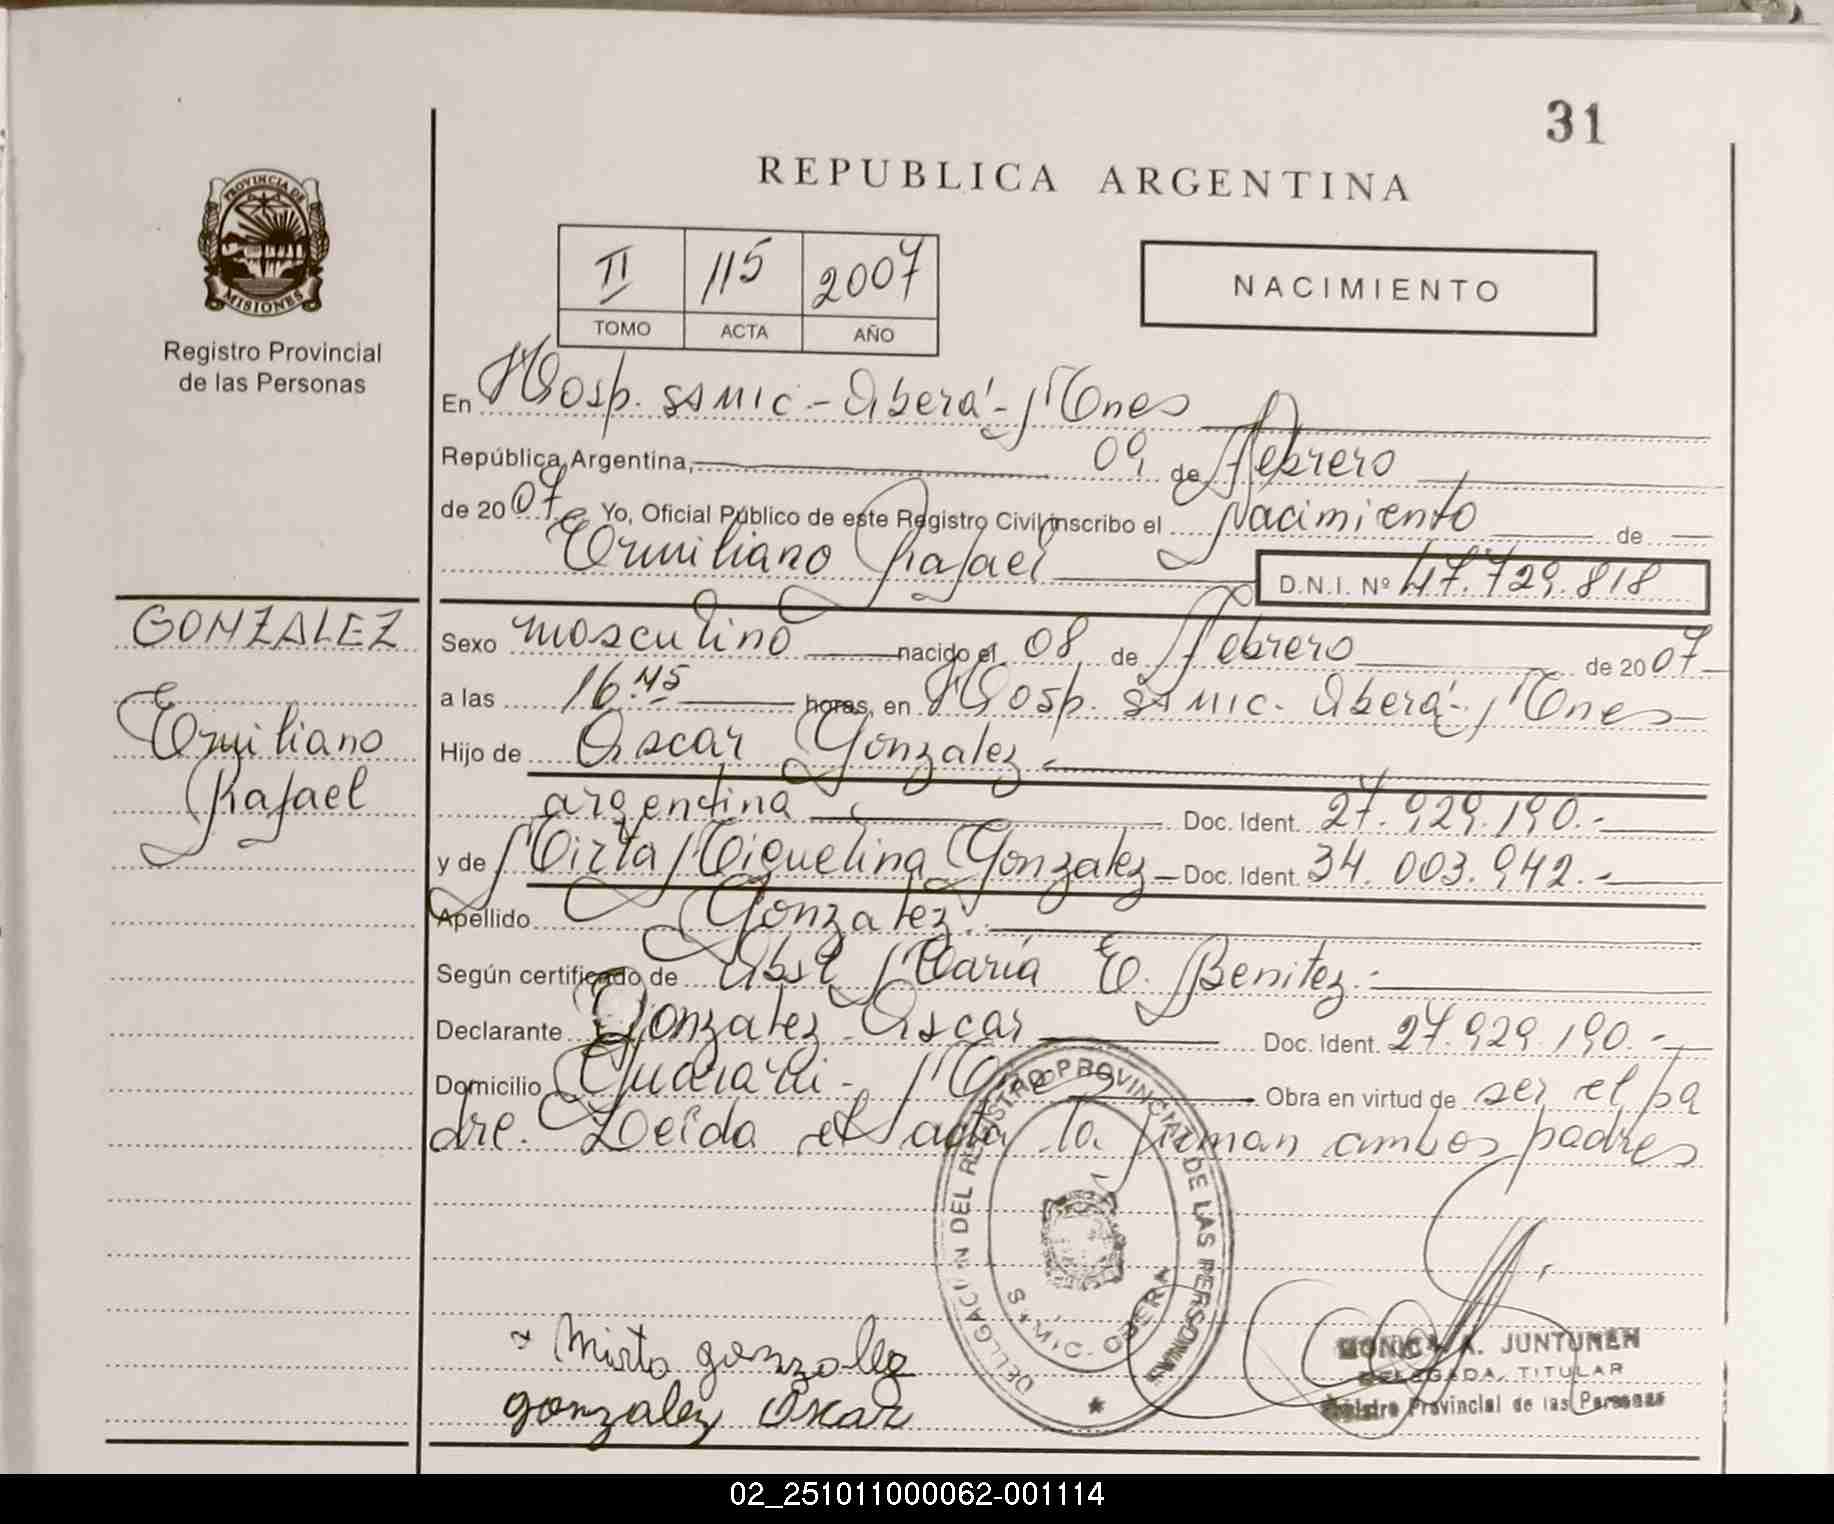 31
REPUBLICA ARGENTINA
PROVINCIA DE
MISIONES
Registro Provincial
de las Personas
II 115 2007
TOMO ACTA AÑO
NACIMIENTO
En Hosp. SAMIC - Oberá - Mnes
República Argentina, 09 de Febrero
de 2007 Yo, Oficial Público de este Registro Civil inscribo el Nacimiento de
Emiliano Rafael D.N.I. Nº 47.729.818
GONZALEZ
Emiliano
Rafael
Sexo masculino nacido el 08 de Febrero de 2007
a las 16.45 horas, en Hosp. SAMIC. Oberá - Mnes
Hijo de Oscar Gonzalez
argentina Doc. Ident. 27.929.190.-
y de Mirta Miguelina Gonzalez Doc. Ident. 34.003.942.-
Apellido Gonzalez.
Según certificado de Obst María E. Benitez.
Declarante Gonzalez Oscar Doc. Ident. 27.929.190.-
Domicilio Guaraní - Mnes Obra en virtud de ser el pa
dre. Leída el acta la firman ambos padres
DELEGACION DEL REGISTRO PROVINCIAL DE LAS PERSONAS
S.A.M.I.C. OBERA
x Mirta gonzalez
gonzalez Oscar
MONICA A. JUNTUNEN
DELEGADA TITULAR
Registro Provincial de las Personas
02_251011000062-001114